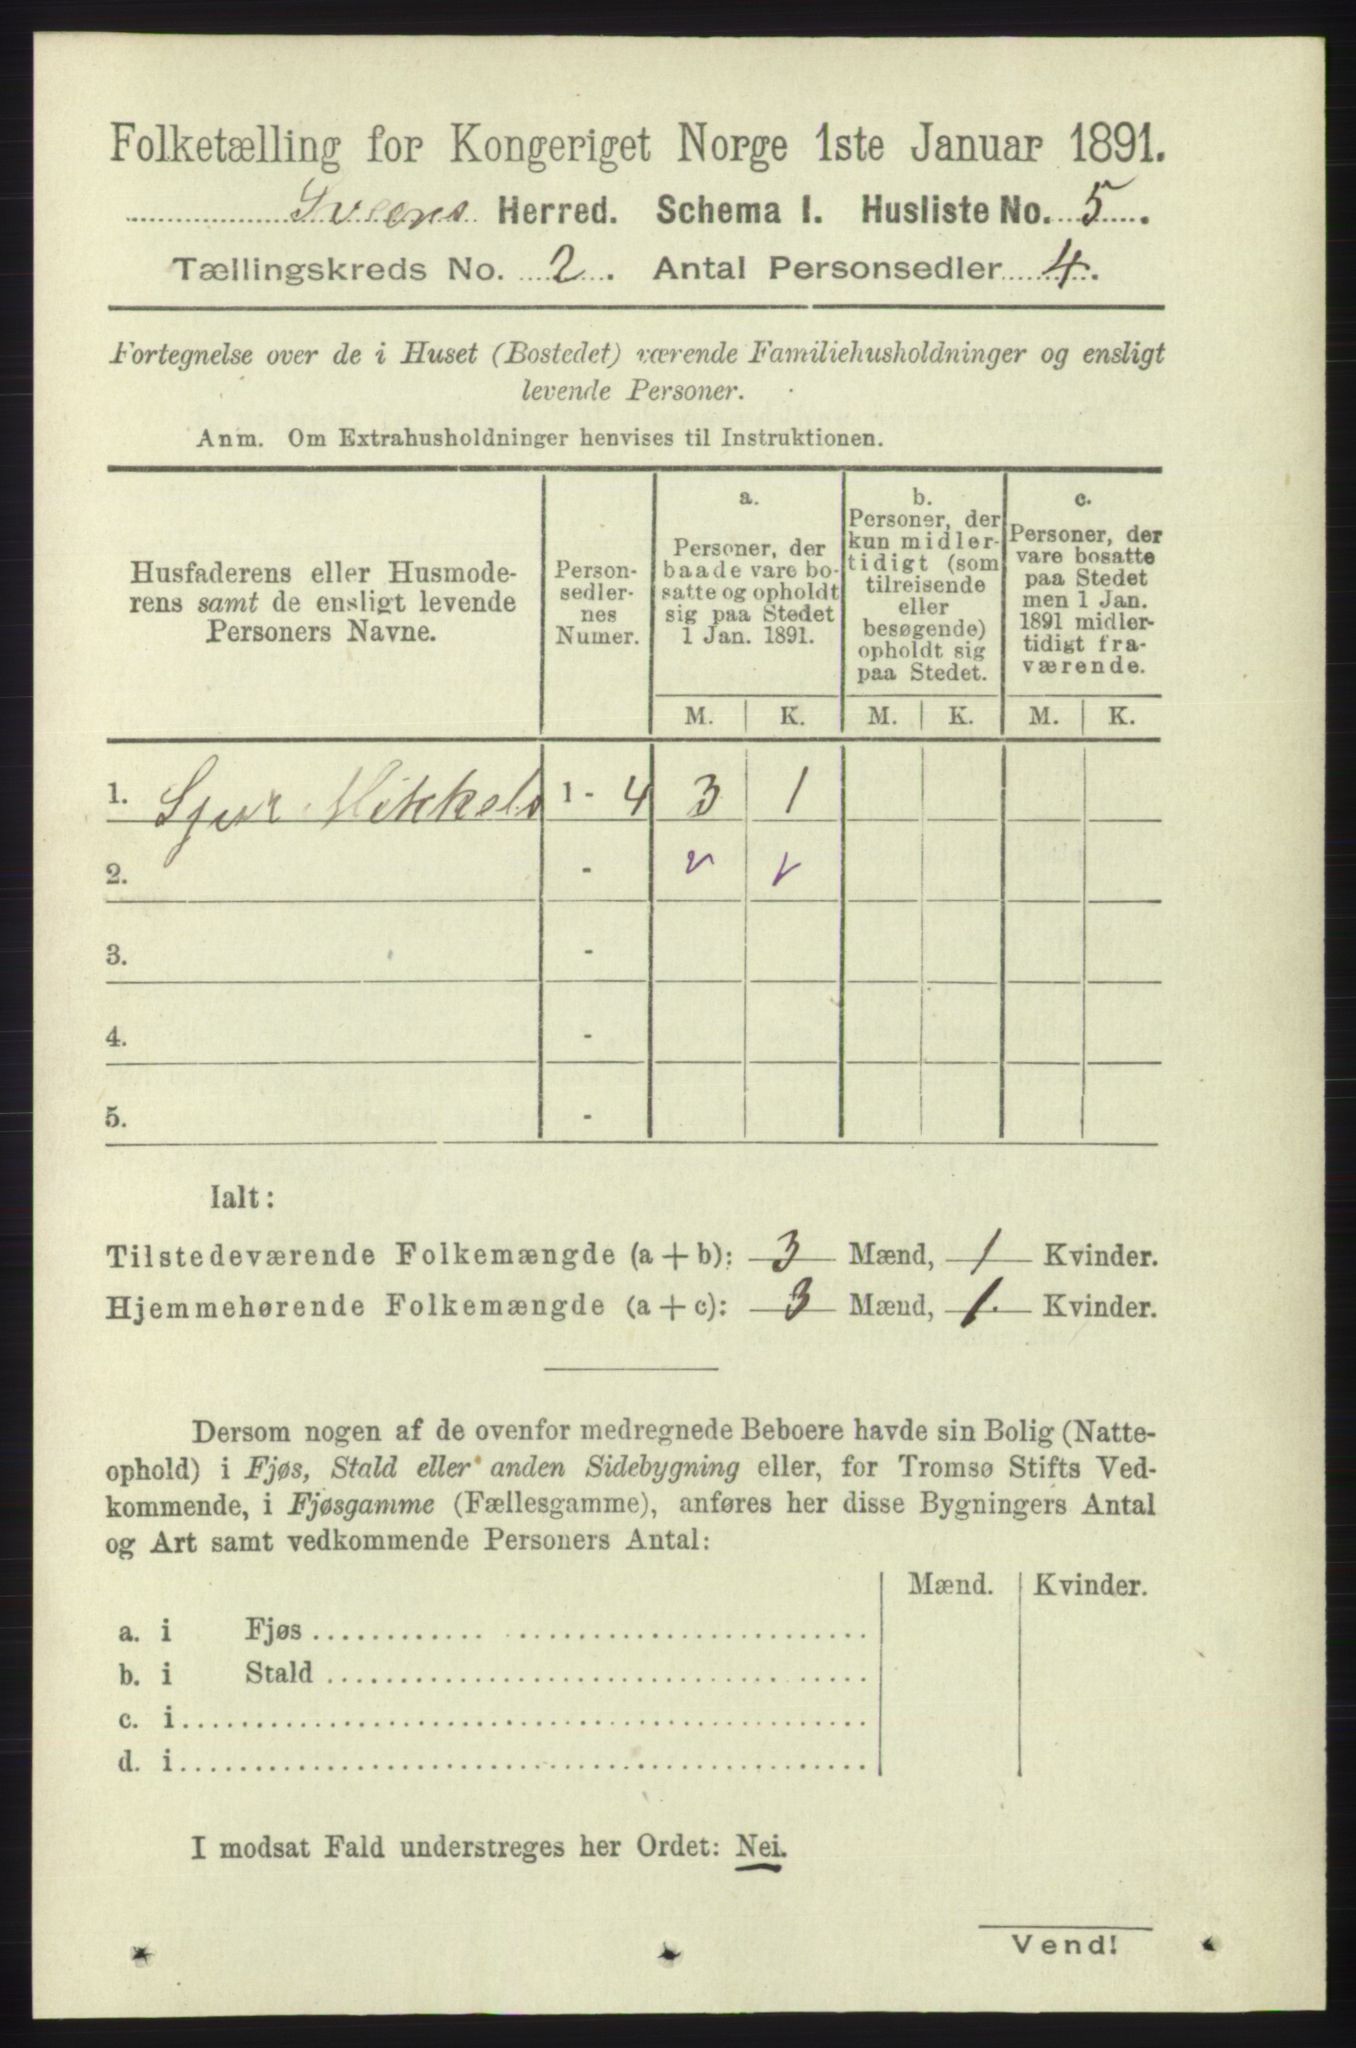 Folketælling for Kongeriget Norge 1ste Januar 1891.
Sveens Herred. Schema I. Husliste No. 5.
Tællingskreds No. 2. Antal Personsedler 4.
Fortegnelse over de i Huset (Bostedet) værende Familiehusholdninger og ensligt
levende Personer.
Anm. Om Extrahusholdninger henvises til Instruktionen.
Husfaderens eller Husmode-
rens samt de ensligt levende
Personers Navne.
Person-
sedler-
nes
Numer.
a.
Personer, der
baade vare bo-
satte og opholdt
sig paa Stedet
1 Jan. 1891.
b.
Personer, der
kun midler-
tidigt (som
tilreisende
eller
besøgende)
opholdt sig
paa Stedet.
c.
Personer, der
vare bosatte
paa Stedet
men 1 Jan.
1891 midler-
tidigt fra-
værende.
M. K. M. K. M. K.
1. Sjur Mikkels 1 - 4 3 1
2. - v v
3. -
4. -
5. -
Ialt:
Tilstedeværende Folkemængde (a + b): 3 Mænd, 1 Kvinder.
Hjemmehørende Folkemængde (a + c): 3 Mænd, 1. Kvinder.
Dersom nogen af de ovenfor medregnede Beboere havde sin Bolig (Natte-
ophold) i Fjøs, Stald eller anden Sidebygning eller, for Tromsø Stifts Ved-
kommende, i Fjøsgamme (Fællesgamme), anføres her disse Bygningers Antal
og Art samt vedkommende Personers Antal:
Mænd. Kvinder.
a. i Fjøs
b. i Stald
c. i
d. i
I modsat Fald understreges her Ordet: Nei.
Vend!